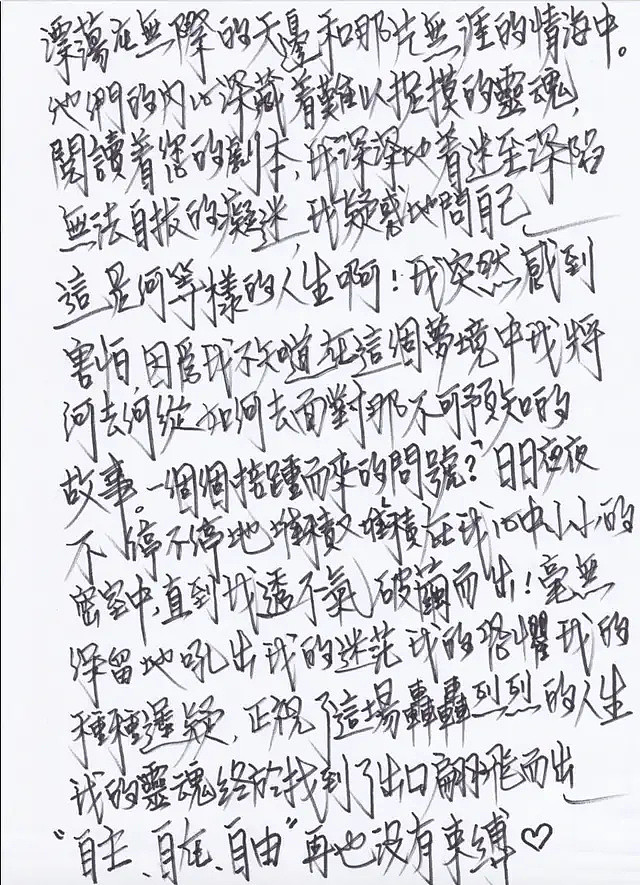 漂蕩在無際的天邊和那片無涯的情海中。
他們的內心深藏着難以捉摸的靈魂,
閱讀着您的劇本,我深深地着迷至深陷
無法自拔的癡迷,我疑惑地問自己
這是何等樣的人生啊!我突然感到
害怕,因為我不知道在這個夢境中我將
何去何從如何去面對那不可預知的
故事。一個個接踵而來的問號?日日夜夜
不停不停地堆積又堆積在我心中小小的
密室中,直到我透不氣破繭而出!毫無
保留地吼出我的迷茫我的恐懼我的
種種遲疑,正視了這場轟轟烈烈的人生
我的靈魂終於找到了出口翩翩飛而出
"自主、自在、自由"再也沒有束縛♡